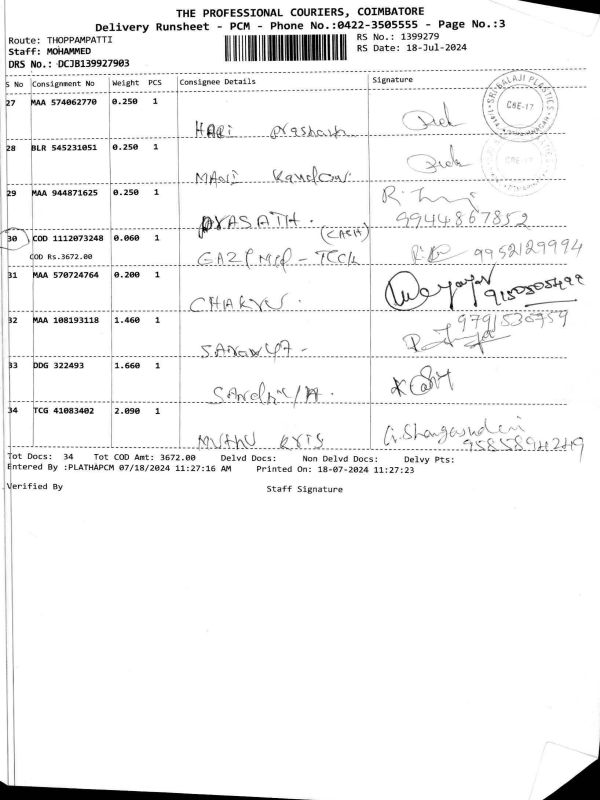 THE PROFESSIONAL COURIERS, COIMBATORE
Delivery Runsheet - PCM - Phone No.:0422-3505555 - Page No.:3
Route: THOPPAMPATTI
RS No.: 1399279
Staff: MOHAMMED
RS Date: 18-Jul-2024
DRS No.: DCJB139927903
S No Consignment No Weight PCS Consignee Details Signature
SRI BALAJI PLASTICS
CBE-17
27 MAA 574062770 0.250 1
HARI Prashanth
28 BLR 545231051 0.250 1
CBE-17
MAni
29 MAA 944871625 0.250 1
PRASATH.
9944867852
30 COD 1112073248 0.060 1 (CASH)
COD Rs.3672.00 9952129994
31 MAA 570724764 0.200 1
32 MAA 108193118 1.460 1 9791536759
33 DDG 322493 1.660 1
34 TCG 41083402 2.090 1
MUTHU KRIS
Tot Docs: 34 Tot COD Amt: 3672.00 Delvd Docs: Non Delvd Docs: Delvy Pts:
Entered By :PLATHAPCM 07/18/2024 11:27:16 AM Printed On: 18-07-2024 11:27:23
Verified By Staff Signature